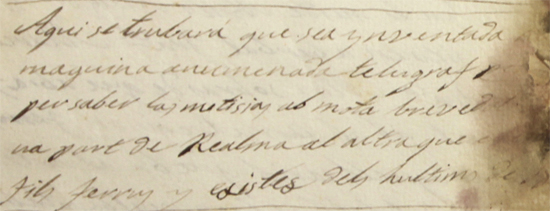 Aqui se trubará que sea ynventada
maquina anumenada telegraf
per saber las notisias ab mota breved
na part de Realma al altra que
fils ferros y existes dels hultims